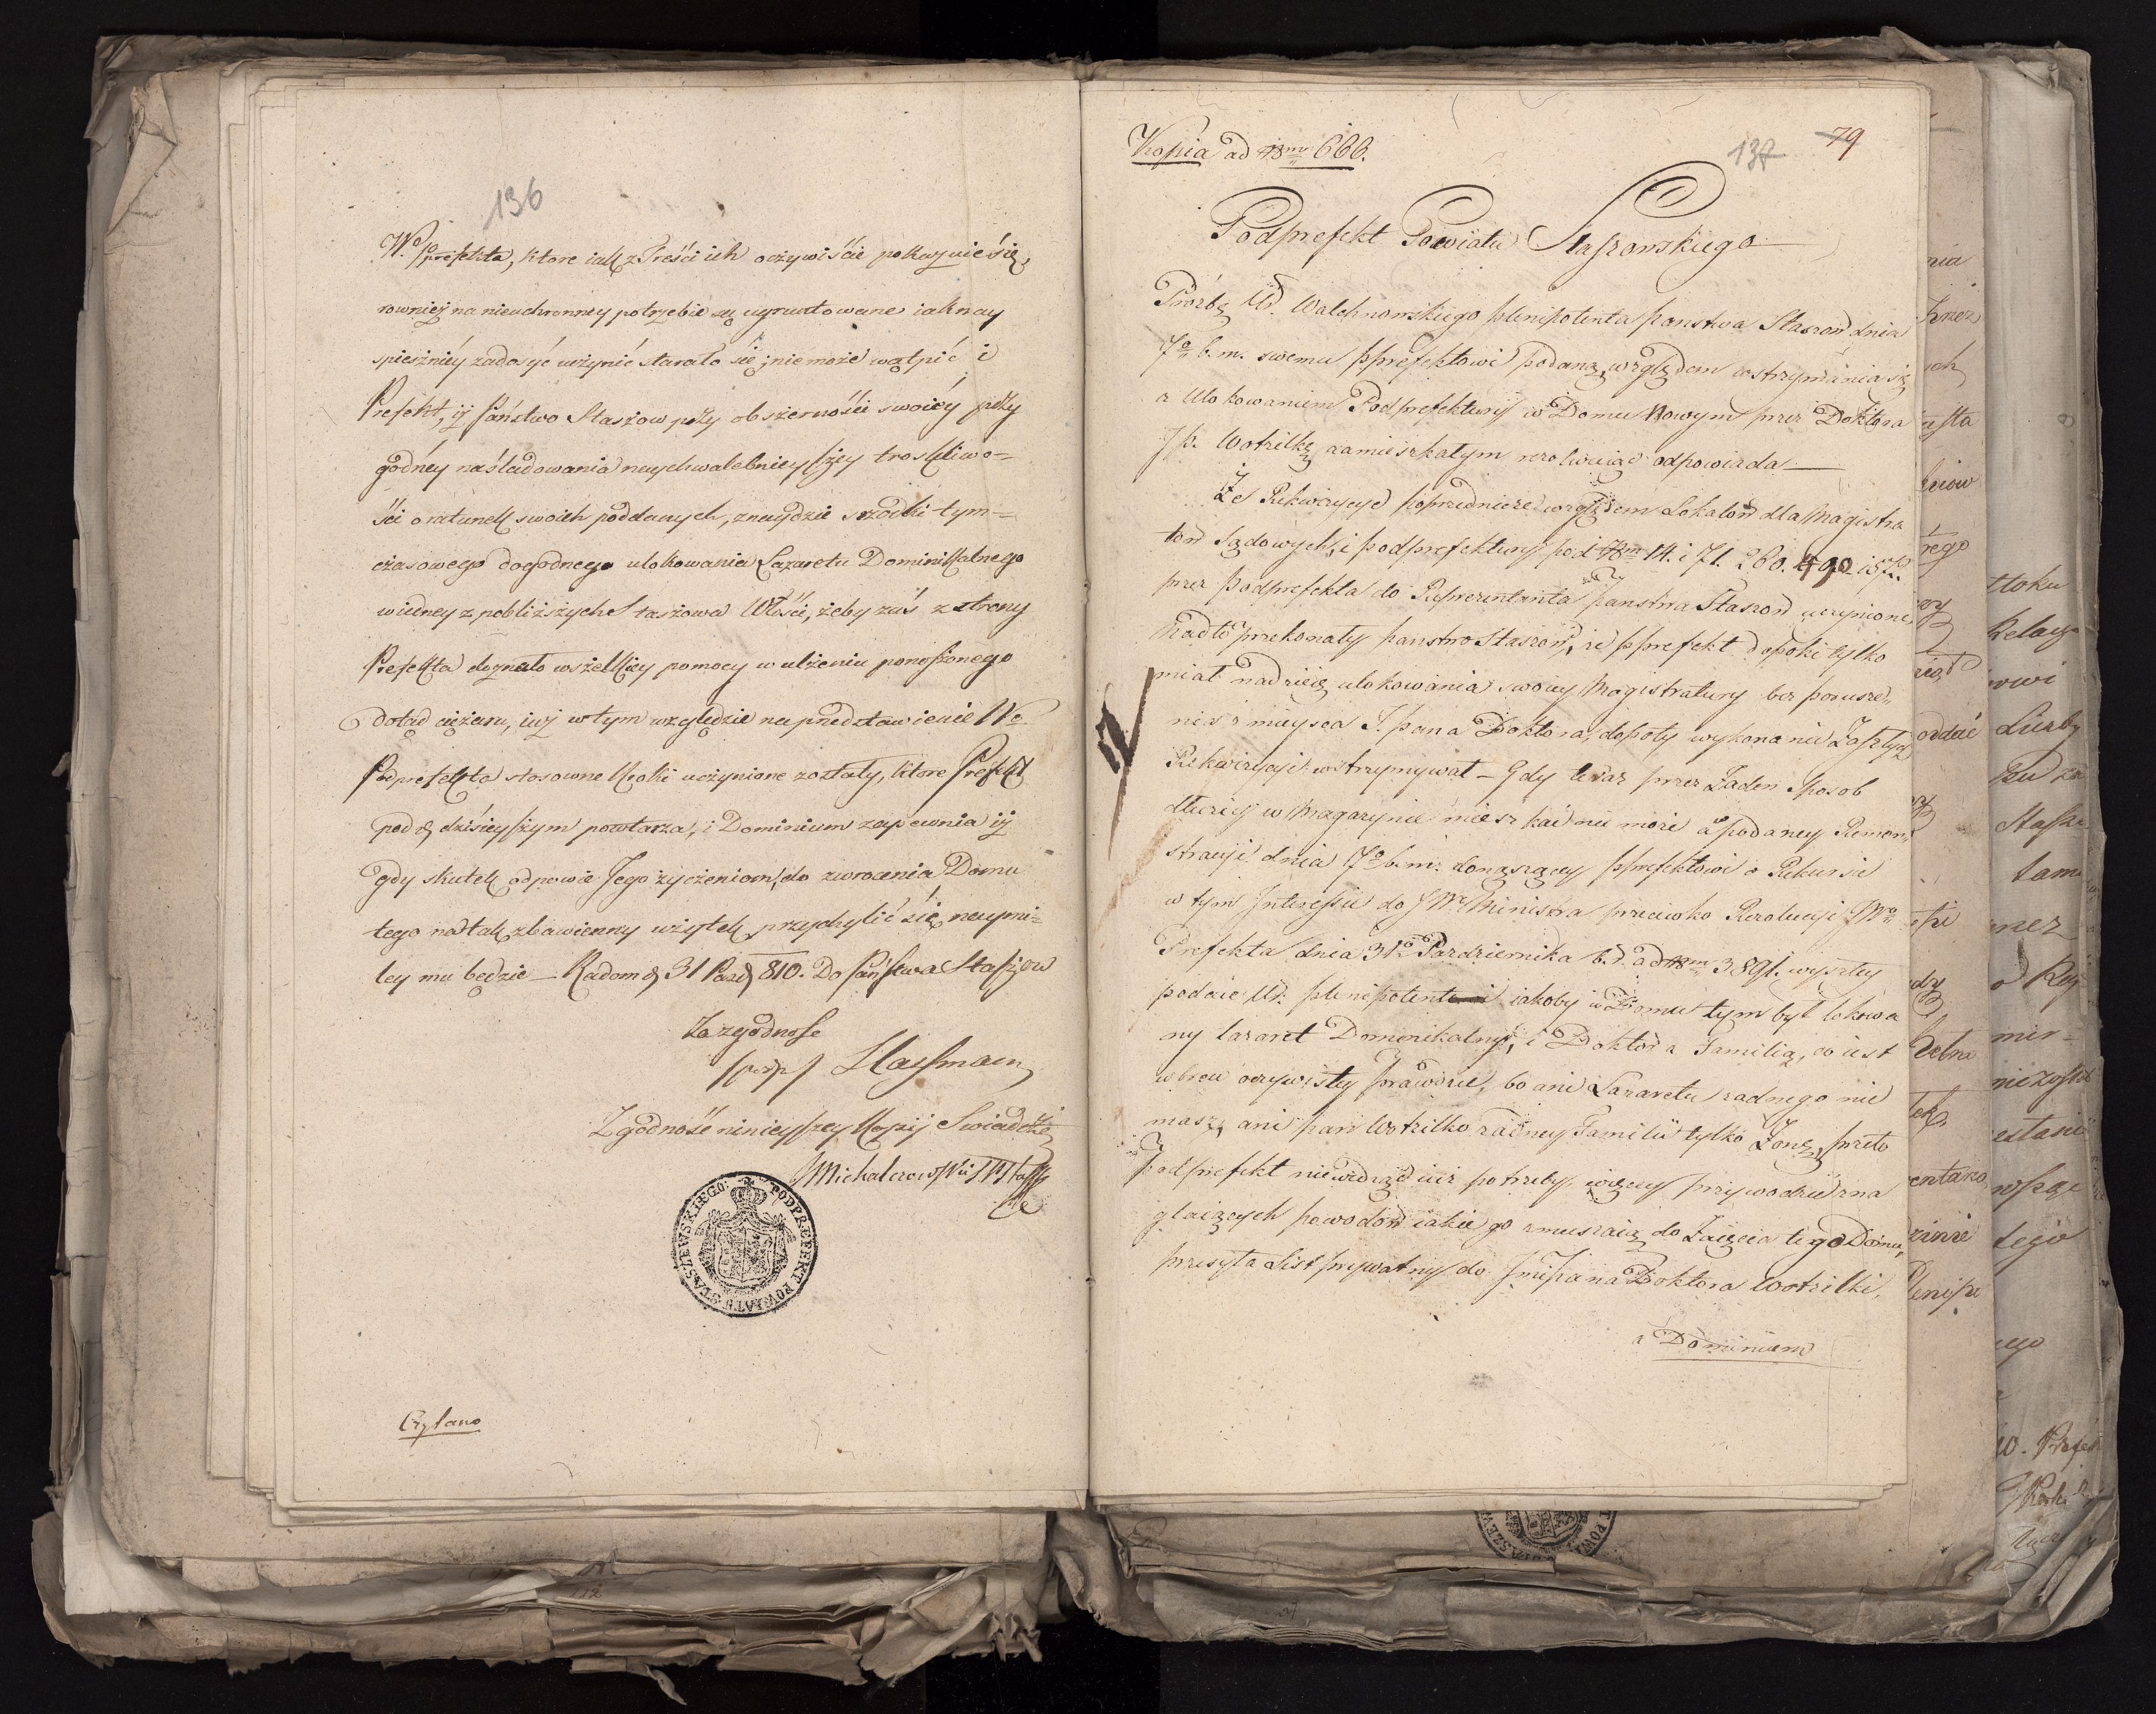 136
Wo pprefekta, ktore iak z Treści ich oczywiście pokazuie się,
rownież na nieuchronney potrzebie są ugruntowane iaknay
spieszniey zadosyć uczynić starało się; nie może wątpić i
Prefekt, iż Państwo Staszow przy obszerności swoiey przy
godney naśladowania naychwalebnieyszey troskliwo=
ści o ratunek swoich poddanych, znaydzie srzodki tym=
czasowego dogodnego ulokowania Lazaretu Dominikalnego
w iedney z pobliższych Staszowa Wści, żeby zaś z strony
Prefekta doznało wszelkiey pomocy w ulżeniu ponoszonego
dotąd ciężaru, iuż w tym względzie na przedstawienie Wo
Podprefekta stosowne kroki uczynione zostały, ktore Prefekt
pod d. dzisieyszym powtarza, i Dominium zapewnia iż
gdy skutek odpowie Jego życzeniom, do zwrocenia Domu
tego na tak zbawienny użytek przychylić się naymi=
ley mu będzie _ Radom d. 31 Paźd. 810. Do Państwa Staszow
Za zgodnosc
(podp) Hassman
Zgodność ninieyszey Kopij Swiadczę
Michalczowski
PODPREFEKT POWIATU STASZEWSKIEGO
Czytano
Kopia ad Nrum 666.
137 79
Podprefekt Powiatu Staszowskiego
Prozbę Ur. Walchnowskiego plenipotenta panstwa Staszow dnia
7o b. m. swemu pprefektowi podaną, względem wstrzymania się
z Ulokowaniem Podprefektury w Domu Nowym przez Doktora
JP. Wotzilkę zamieszkałym rezolwuiąc odpowiada —
Że Rekwizycye poprzednicze względem Lokalow dla Magistra
tow Sądowych, i podprefektury pod Nrem 14. i 71. 260. 490 i
przez podprefekta do Reprezentanta panstwa Staszow uczynione,
nadto przekonały panstwo Staszow, że pprefekt dopoki tylko
miał nadzieię ulokowania swoiey Magistratury bez porusze„
nia z mieysca J. pana Doktora, dopoty wykonanie Zaszłych
Rekwizycyi wstrzymywał – Gdy teraz przez Żaden sposob
dłużey w Magazynie mieszkać nie może a podaney Remon„
stracyi dnia 7o b. m. donaszący pprefektowi o Rekursie
w tym Interessie do JWo Ministra przeciwko Rezolucyi JWo
Prefekta dnia 31o Pazdziernika b.r. ad Nrum 3891. wyszłey
podaie Ur. plenipotent iakoby w Domu tym był lokowa
ny lazaret Dominikalny, i Doktor z Familią, co iest
wbrew oczywistey prawdzie, bo ani Lazaretu zadnego nie
masz, ani pan Wotzilko żadney Familii tylko Żonę, przeto
podprefekt nie widząc iuż potrzeby więcey przywodzić zna
glaiących powodow iakie go zmuszaią do Zaięcia tego Domu,
przesyła List prywatny do Jmć pana Doktora Wotzilki,
z Dominium